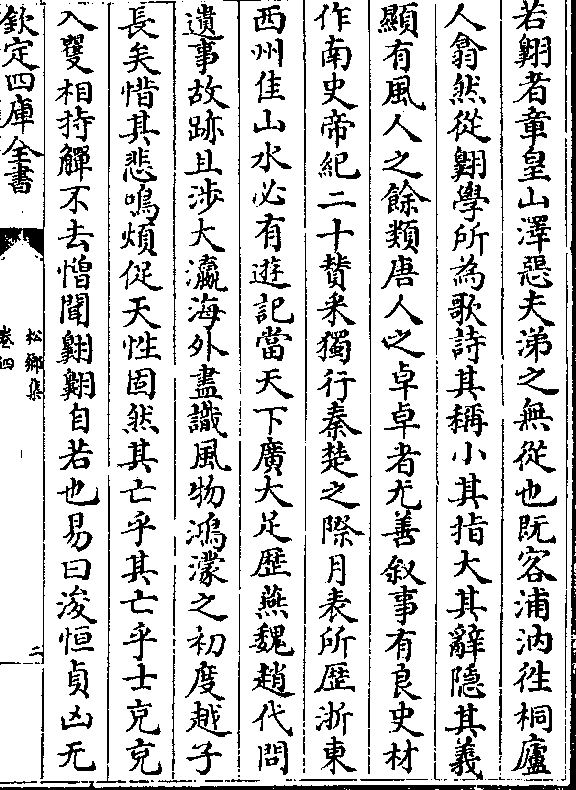 若翺者章皇山澤惡夫涕之無從也既容浦汭徃桐廬
人翕然從翺學所為歌詩其稱小其指大其辭隱其義
顯有風人之餘類唐人之卓卓者尤善叙事有良史材
作南史帝紀二十賛釆獨行秦楚之際月表所歴浙東
西州佳山水必有遊記當天下廣大足歴燕魏趙代問
遺事故跡且渉大瀛海外盡識風物鴻濛之初度越子
長矣惜其悲鳴煩促天性固然其亡乎其亡乎士克克
入雙相持觶不去憎聞翺翺自若也易曰浚恒貞凶无
欽定四庫全書
松鄉集
卷四
二